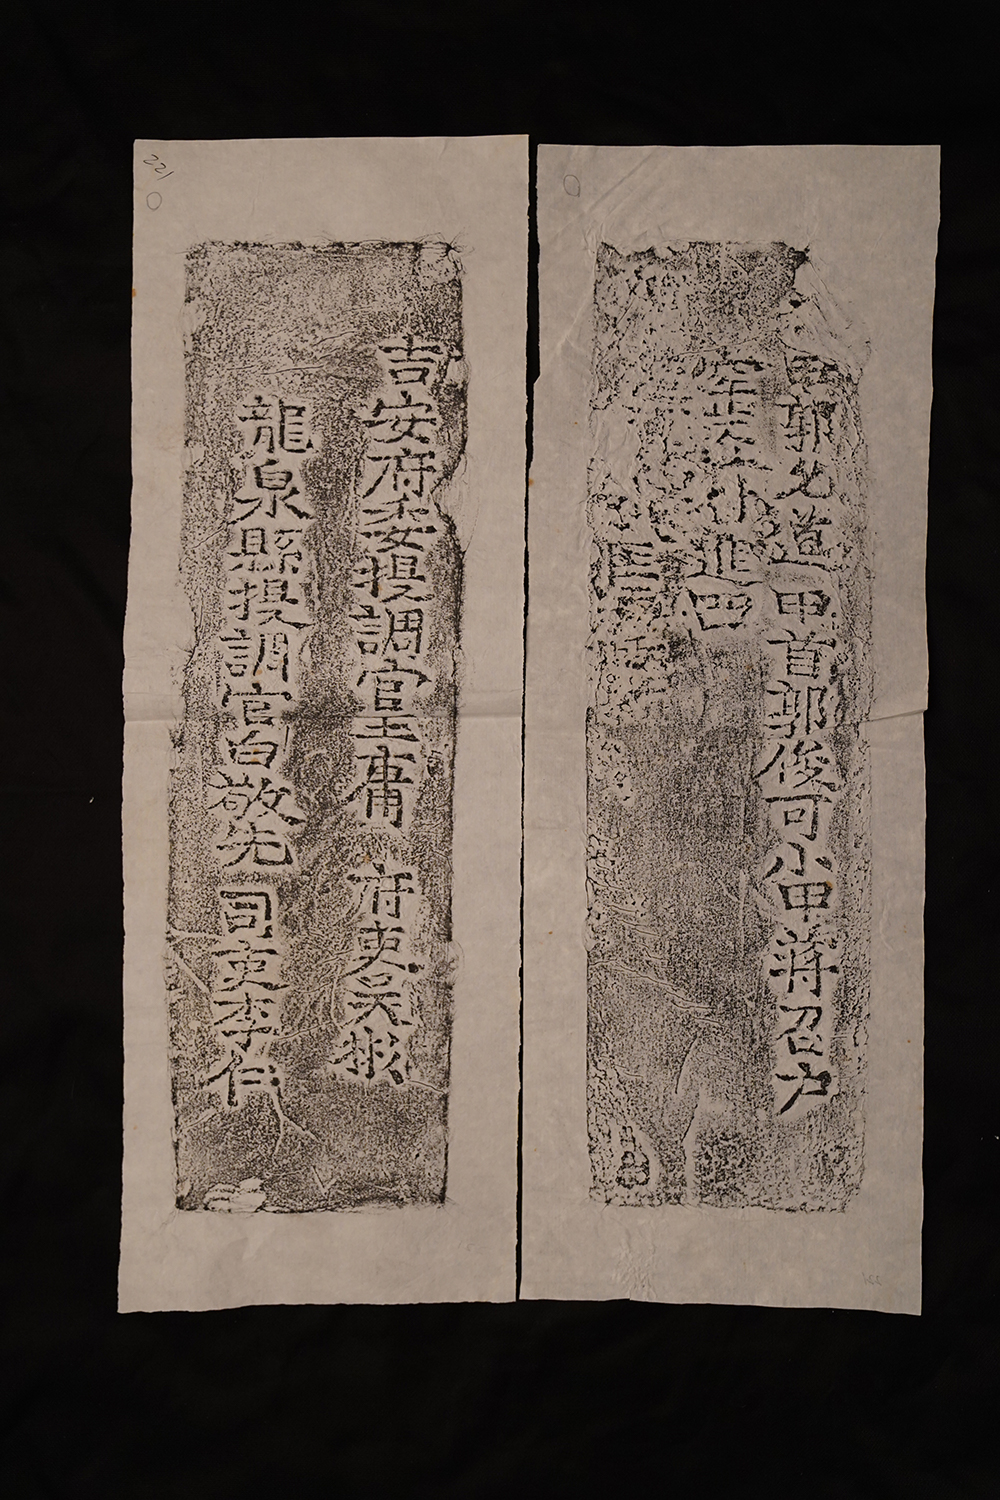 221
吉安府委提調官王庸 府吏吳彬
龍泉縣提調官白敬先 司吏李仁
甲郭允道甲首郭俊可小甲蒋召户
進四